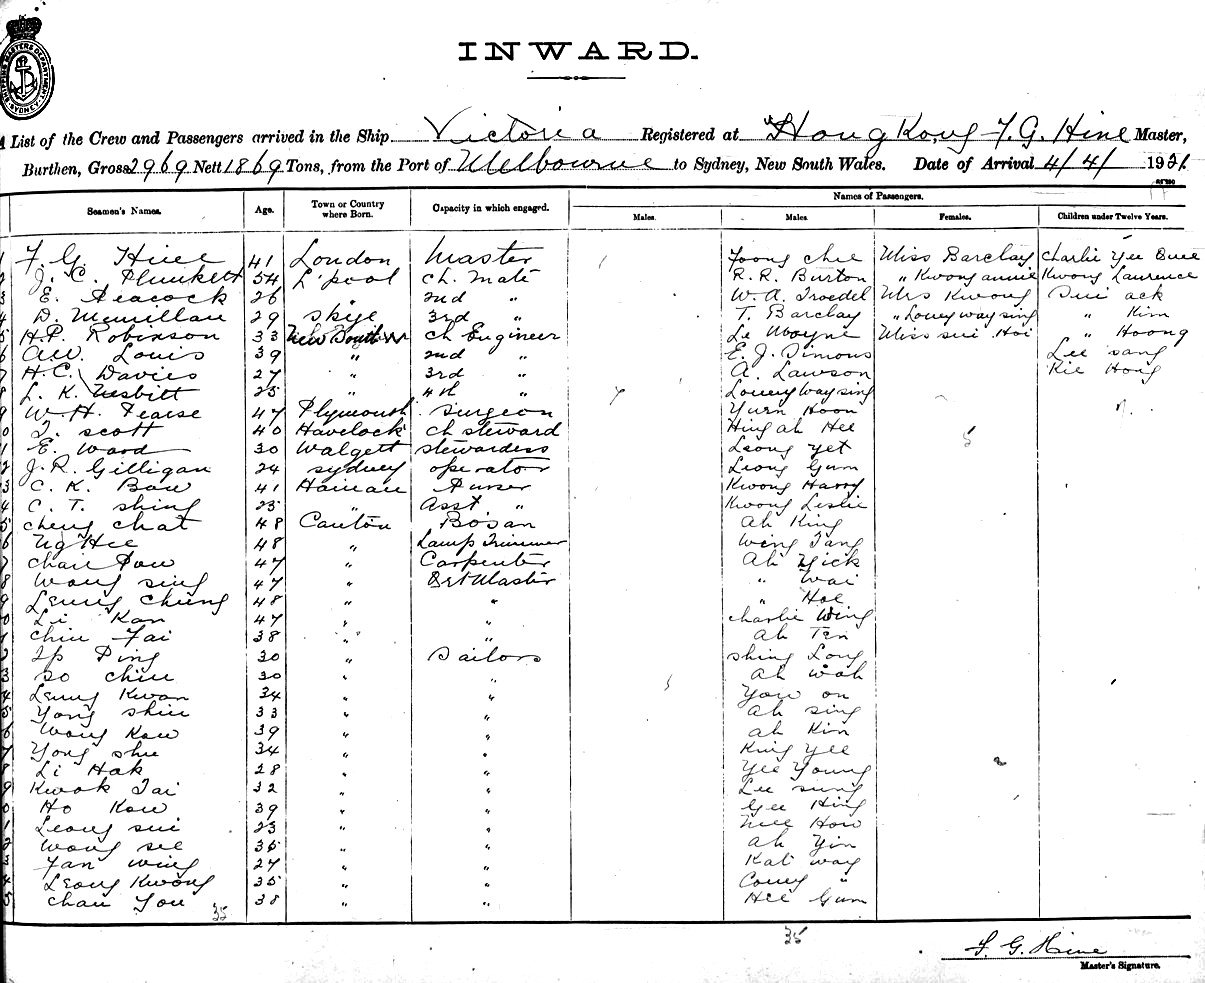 SHIPPING MASTERS DEPARTMENT SYDNEY
INWARD.
A List of the Crew and Passengers arrived in the Ship Victoria Registered at Hong Kong F. G. Hine Master,
Burthen, Gross 2969 Nett 1869 Tons, from the Port of Melbourne to Sydney, New South Wales. Date of Arrival 4/4/1921
Names of Passengers.
Seamen's Names. Age. Town or Country where Born. Capacity in which engaged. Males. Males. Females. Children under Twelve Years.
1 F. G. Hine 41 London Master Foong chee Miss Barclay Charlie Yee
2 J. C. Plunkett 54 L'pool ch. mate R. R. Burton " Kwong annie Kwong Laurence
3 E. Peacock 26 " 2nd " W. A. Troedel Mrs Kwong Sui ack
4 D. Mcmillan 29 Skye 3rd " T. Barclay " Louey way sing " Kim
5 H. P. Robinson 33 New South W ch Engineer Le Wayne Miss sui Hoi " Hoong
6 A.W. Louis 39 " 2nd " E. J. Simons Lee sang
7 H. C. Davies 27 " 3rd " A. Lawson Kie Hong
8 L. K. Nesbitt 25 " 4th " Louey way sing
9 W. H. Pearse 47 Plymouth surgeon Yuen Hoon
0 J. Scott 40 Havelock ch steward Hing ah Hee
1 E. Ward 30 Walgett stewardess Leong yet
2 J. R. Gilligan 24 Sydney operator Leong Gum
3 C. K. Bau 41 Hainan Purser Kwong Harry
4 C. T. shing 25 " Asst " Kwong Leslie
5 cheng chat 48 Canton Bosan Ah King
6 Ng Hee 48 " Lamp Trimmer Wing Tang
7 chan Pow 47 " Carpenter Ah Yick
8 Wong sing 47 " Qrt Master " Wai
9 Leung Chung 48 " " " Hoe
0 Li Kan 47 " " charlie Wing
1 chiu Fai 38 " " Ah Ten
2 Ip Ping 30 " Sailors shing Long
3 So chiu 30 " " Ah wah
4 Leung Kwan 34 " " You on
5 Yong shiu 33 " " ah sing
6 Wong Kau 39 " " ah Kin
7 Yong shu 34 " " King Yee
8 Li Hak 28 " " Yee Young
9 Kwok Tai 32 " " Lee sung
0 Ho Kow 39 " " Gee Hing
1 Leong sui 23 " " How
2 Wong see 35 " " ah Yin
3 Fan Wing 27 " " Kat way
4 Leong Kwong 35 " " "
5 chan You 38 " " Hee Gum
35
35
F. G. Hine
Master's Signature.